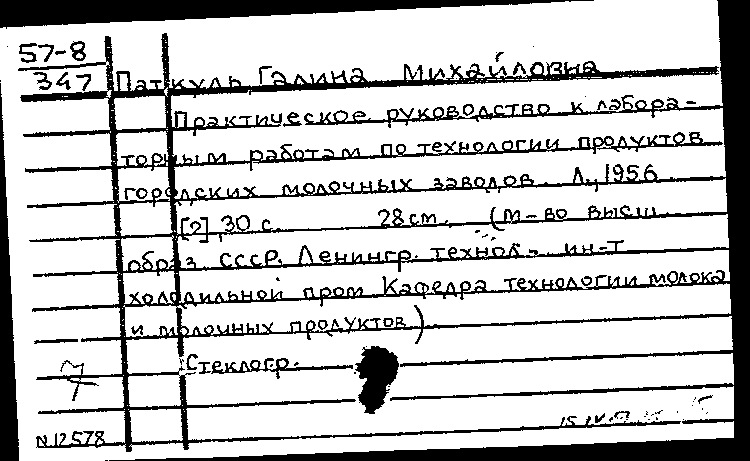 57-8
347
Паткуль, Галина Михайловна
Практическое руководство к лабора-
торным работам по технологии продуктов
городских молочных заводов. Л., 1956
[2], 30 с. 28 см. (М-во высш.
образ. СССР. Ленингр. технол. ин-т
холодильной пром. Кафедра технологии молока
и молочных продуктов)
Стеклогр.
N 12578